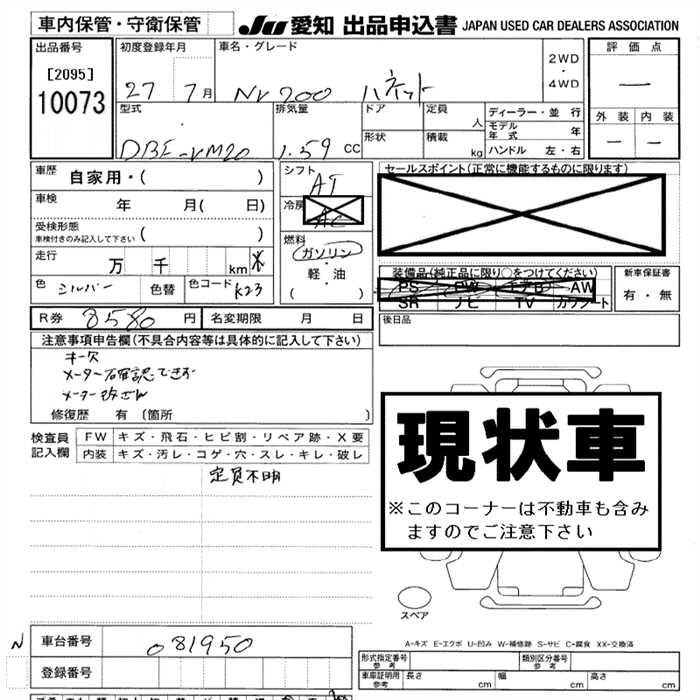 車内保管・守衛保管 JU 愛知 出品申込書 JAPAN USED CAR DEALERS ASSOCIATION
出品番号 初度登録年月 車名・グレード 評価点
[2095] 2WD
・
10073 27 7月 NV200 バネット 4WD —
型式 排気量 ドア 定員 人 ディーラー・並行 外装 内装
モデル年式 年
DBF-VM20 1.59 CC 形状 積載 kg ハンドル 左・右 — —
車歴 自家用・( ) シフト AT セールスポイント(正常に機能するものに限ります)
車検 年 月( 日) 冷房 AC
受検形態 ( )
車検付きのみ記入して下さい
燃料 ガソリン
・
軽・油
( )
走行 万 千 km
装備品(純正品に限り○をつけてください) 新車保証書
色 シルバー 色替 色コード K23
PS PW エアB AW 有・無
SR ナビ TV カワシート
R券 8580円 名変期限 月 日 後日品
注意事項申告欄(不具合内容等は具体的に記入して下さい)
キー欠
メーター確認できず
メーター改ざん
修復歴 有 (箇所 )
現状車
※このコーナーは不動車も含み
ますのでご注意下さい
検査員 FW キズ・飛石・ヒビ割・リペア跡・X要
記入欄 内装 キズ・汚レ・コゲ・穴・スレ・キレ・破レ
定員不明
スペア
A-キズ E-エクボ U-凹み W-補修跡 S-サビ C-腐食 XX-交換済
N 車台番号 081950
形式指定番号 参考 類別区分番号 参考
登録番号
車庫証明用 参考 長さ cm 幅 cm 高さ cm